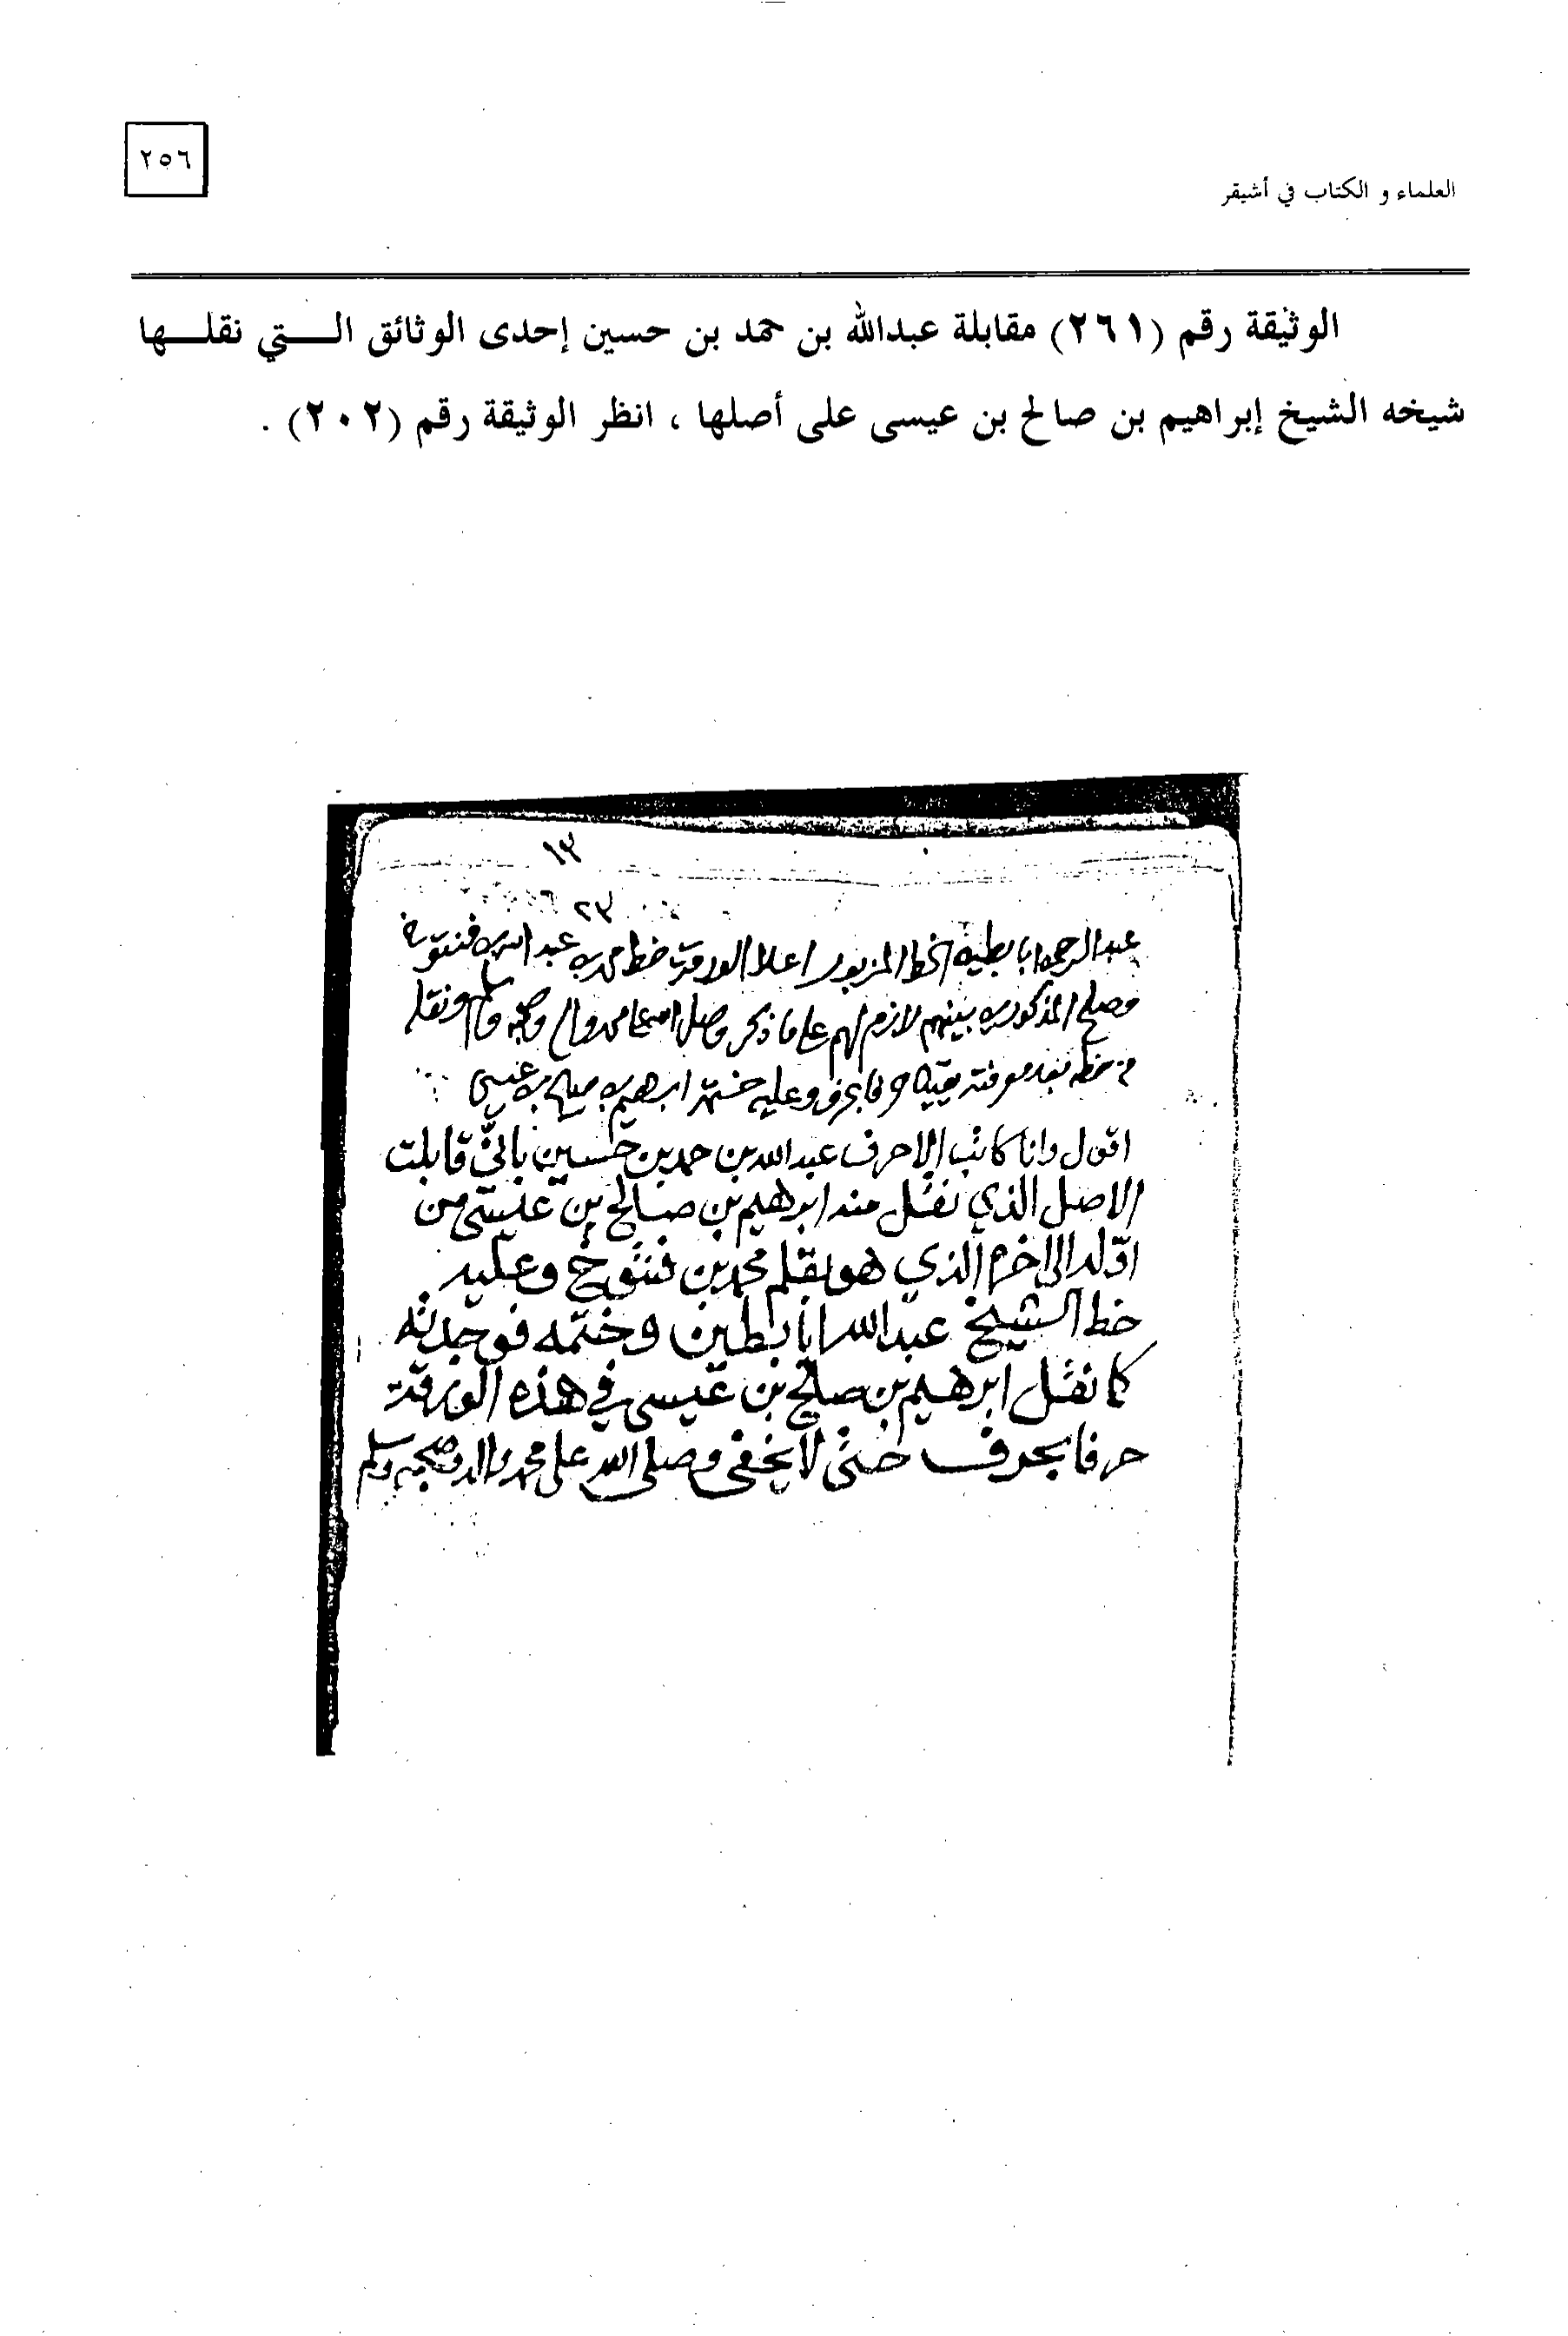 ٢٥٦
العلماء و الكتاب في أشيقر
الوثيقة رقم (٢٦١) مقابلة عبدالله بن حمد بن حسين إحدى الوثائق الـــتي نقلـــها
شيخه الشيخ إبراهيم بن صالح بن عيسى على أصلها ، انظر الوثيقة رقم (٢٠٢) .
١٣
٢٣
عبد الرحمن ابابطين الخط المزبور اعلا الورقة خط محمد بن عبد الله بن فنتوخ
وصلح المذكورين بينهم لازم لهم على ما ذكر وصلى الله على محمد واله وصحبه وسلم ونقله
من خطه بعد معرفته يقينا حرفا بحرف وعليه ختمه ابرهيم بن صالح بن عيسى
اقول وانا كاتب الاحرف عبد الله بن حمد بن حسين باني قابلت
الاصل الذي نقل منه ابرهيم بن صالح بن عيسى من
اوله الى اخره الذي هو بقلم محمد بن فنتوخ وعليه
خط الشيخ عبد الله ابابطين وختمه فوجدته
كما نقل ابرهيم بن صالح بن عيسى في هذه الورقة
حرفا بحرف حتى لا يخفى وصلى الله على محمد واله وصحبه وسلم